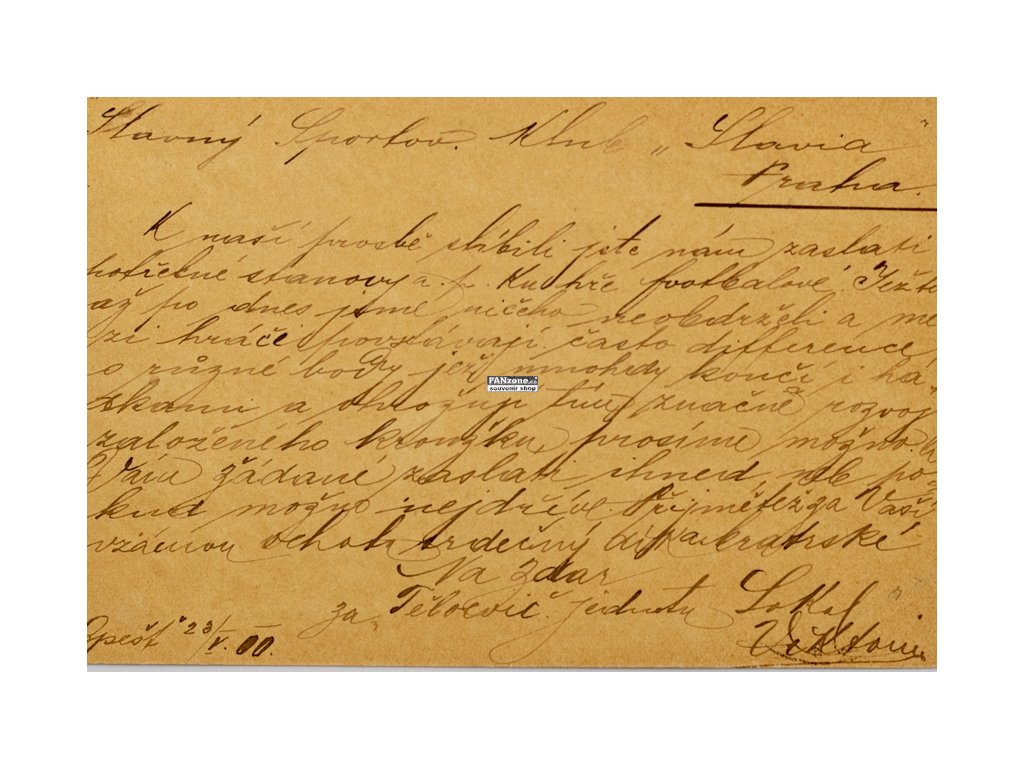 Slavný Sportov. Klub „Slavia"
Praha.
K naší prosbě slíbili jste nám zaslati
potřebné stanovy a. p. ku hře footbalové. Ježto
až po dnes jsme ničeho neobdrželi a me-
zi hráči povstávají často difference
o různé body jež mnohdy končí i há-
FANzone.cz
souvenir shop
dkami a ohrožují tím značně rozvoj
založeného kroužku, prosíme možno-li
Vám žádané zaslati ihned, neb po-
kud možno nejdříve. Přijmětež za Vaši
vzácnou ochotu srdečný dík a bratrské
Na zdar
za „Tělocvič. jednotu Sokol
Bpešť 23/V. 00. Viktorin